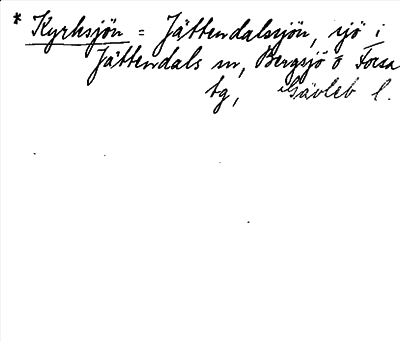 * Kyrksjön = Jättendalssjön, sjö i
Jättendals sn, Bergsjö o Forsa
tg, Gävleb l.